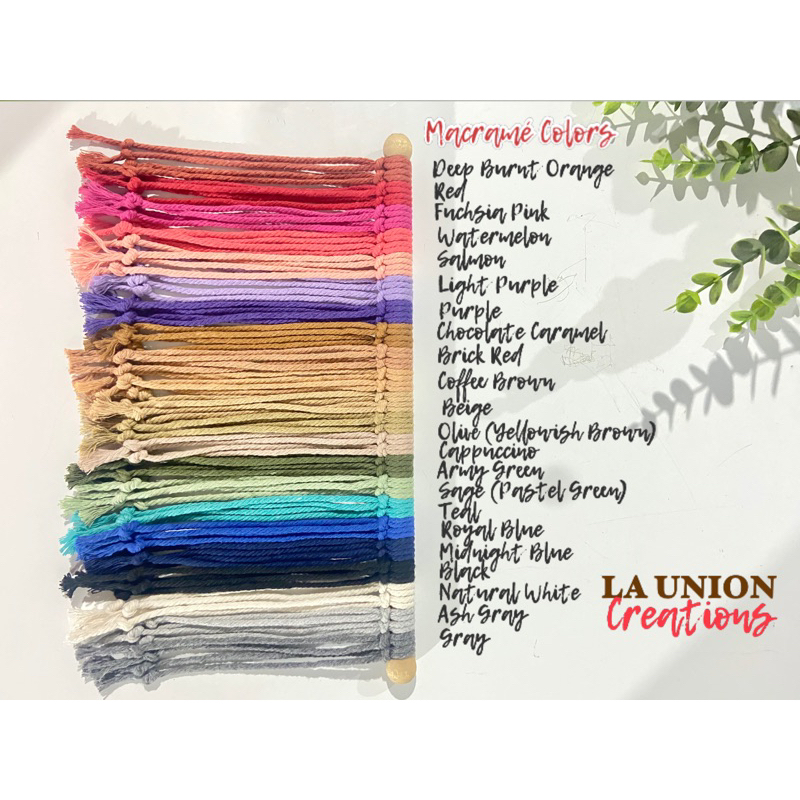 Macramé Colors
Deep Burnt Orange
Red
Fuchsia Pink
Watermelon
Salmon
Light Purple
Purple
Chocolate Caramel
Brick Red
Coffee Brown
Beige
Olive (Yellowish Brown)
Cappuccino
Army Green
Sage (Pastel Green)
Teal
Royal Blue
Midnight Blue
Black
Natural White
Ash Gray
Gray
LA UNION
Creations